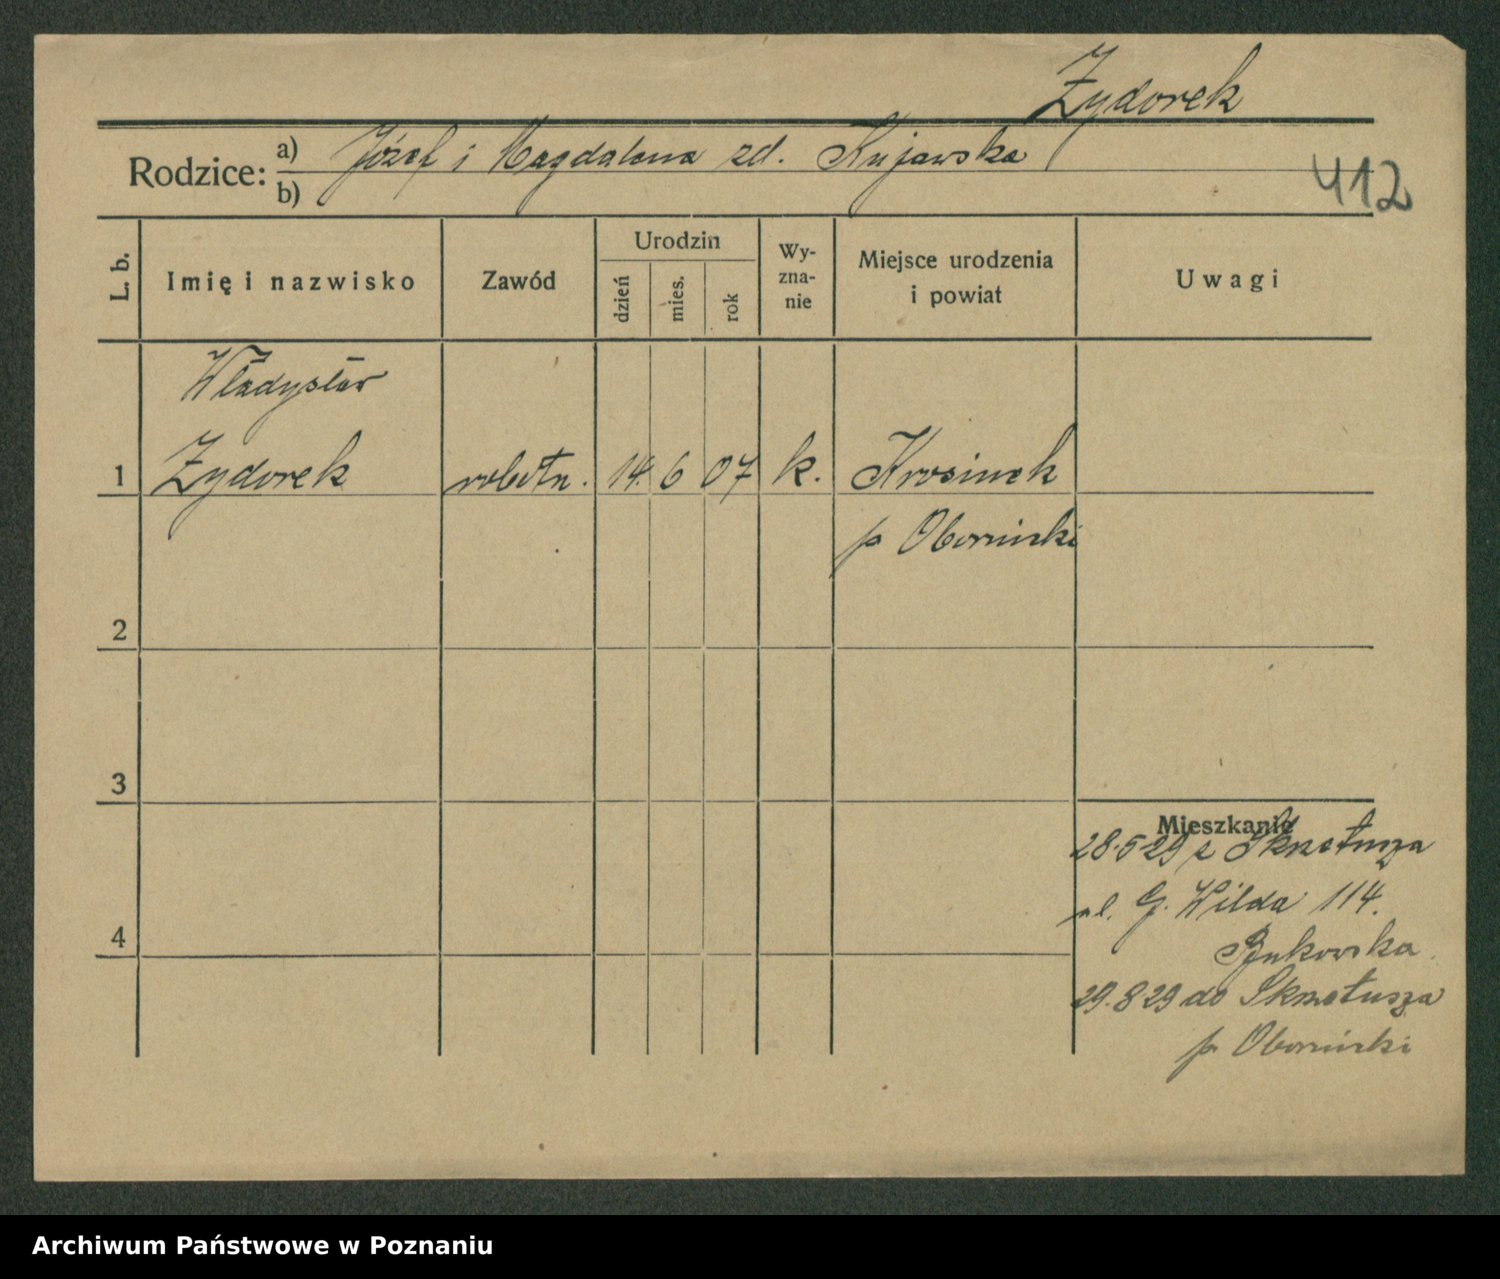 Zydorek
Rodzice: a) Józef i Magdalena zd. Kujawska
b)
412
L. b.
Imię i nazwisko
Zawód
Urodzin
dzień
mies.
rok
Wy-
zna-
nie
Miejsce urodzenia
i powiat
Uwagi
Władysław
1 Zydorek robotn. 14. 6 07 k. Krosinek
p Obornicki
2
3
Mieszkanie
28.5 29 z Skrzetusza
ul. G. Wilda 114.
4
Bukowska
29.8 29 do Skrzetusza
p Obornicki
Archiwum Państwowe w Poznaniu